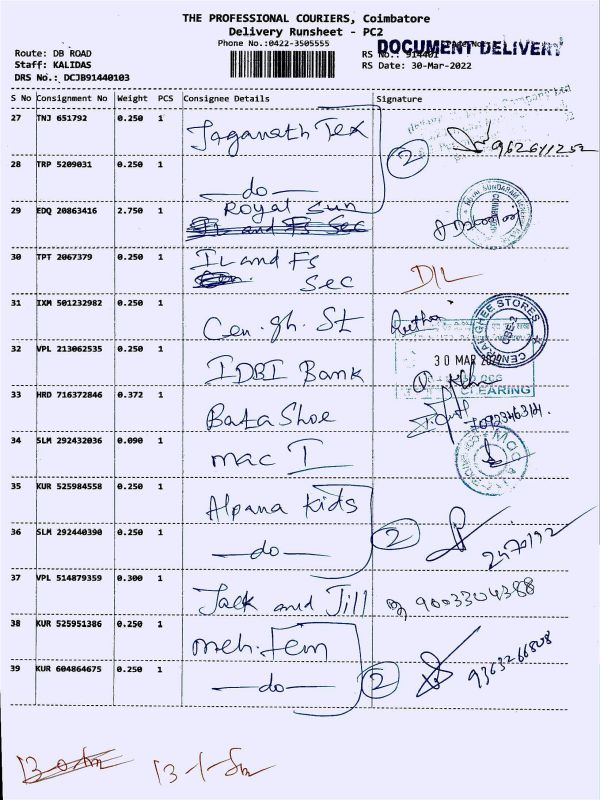 THE PROFESSIONAL COURIERS, Coimbatore
Delivery Runsheet - PC2
Phone No.:0422-3505555
DOCUMENT DELIVERY
Route: DB ROAD
RS No.: 914401
Staff: KALIDAS
RS Date: 30-Mar-2022
DRS No.: DCJB91440103
S No Consignment No Weight PCS Consignee Details Signature
27 TNJ 651792 0.250 1 Jaganath Tex 2
28 TRP 5209031 0.250 1 -do-
29 EDQ 20863416 2.750 1 Royal Sun
30 TPT 2067379 0.250 1 IL and Fs Sec D/L
31 IXM 501232982 0.250 1 Cen. gh. St
CENTRAL GHEE STORES
32 VPL 213062535 0.250 1 IDBI Bank 30 MAR 2022
CLEARING
33 HRD 716372846 0.372 1 Bata Shoe
34 SLM 292432036 0.090 1 mac I
35 KUR 525984558 0.250 1 Alpana Kids
36 SLM 292440390 0.250 1 -do- 2 2470192
37 VPL 514879359 0.300 1 Jack and Jill 9003304388
38 KUR 525951386 0.250 1
39 KUR 604864675 0.250 1 -do- 2 9363266808